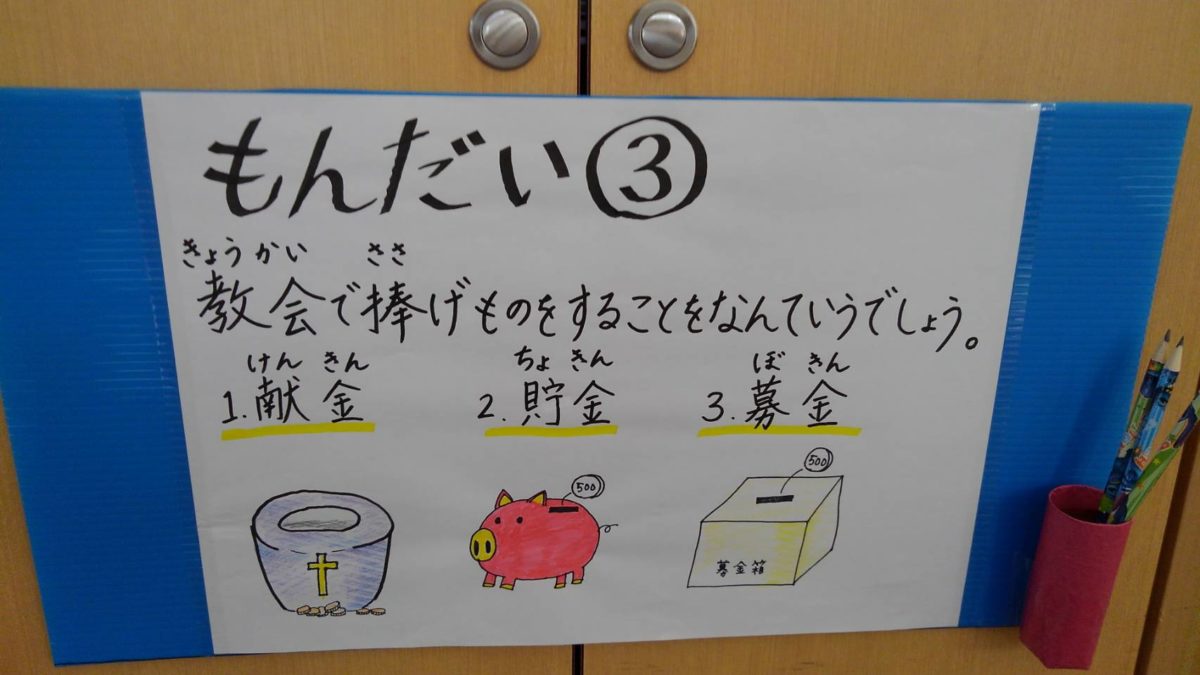 もんだい③
きょうかい ささ
教会で捧げものをすることをなんていうでしょう。
けんきん ちょきん ぼきん
1.献金 2.貯金 3.募金
500 500
募金箱